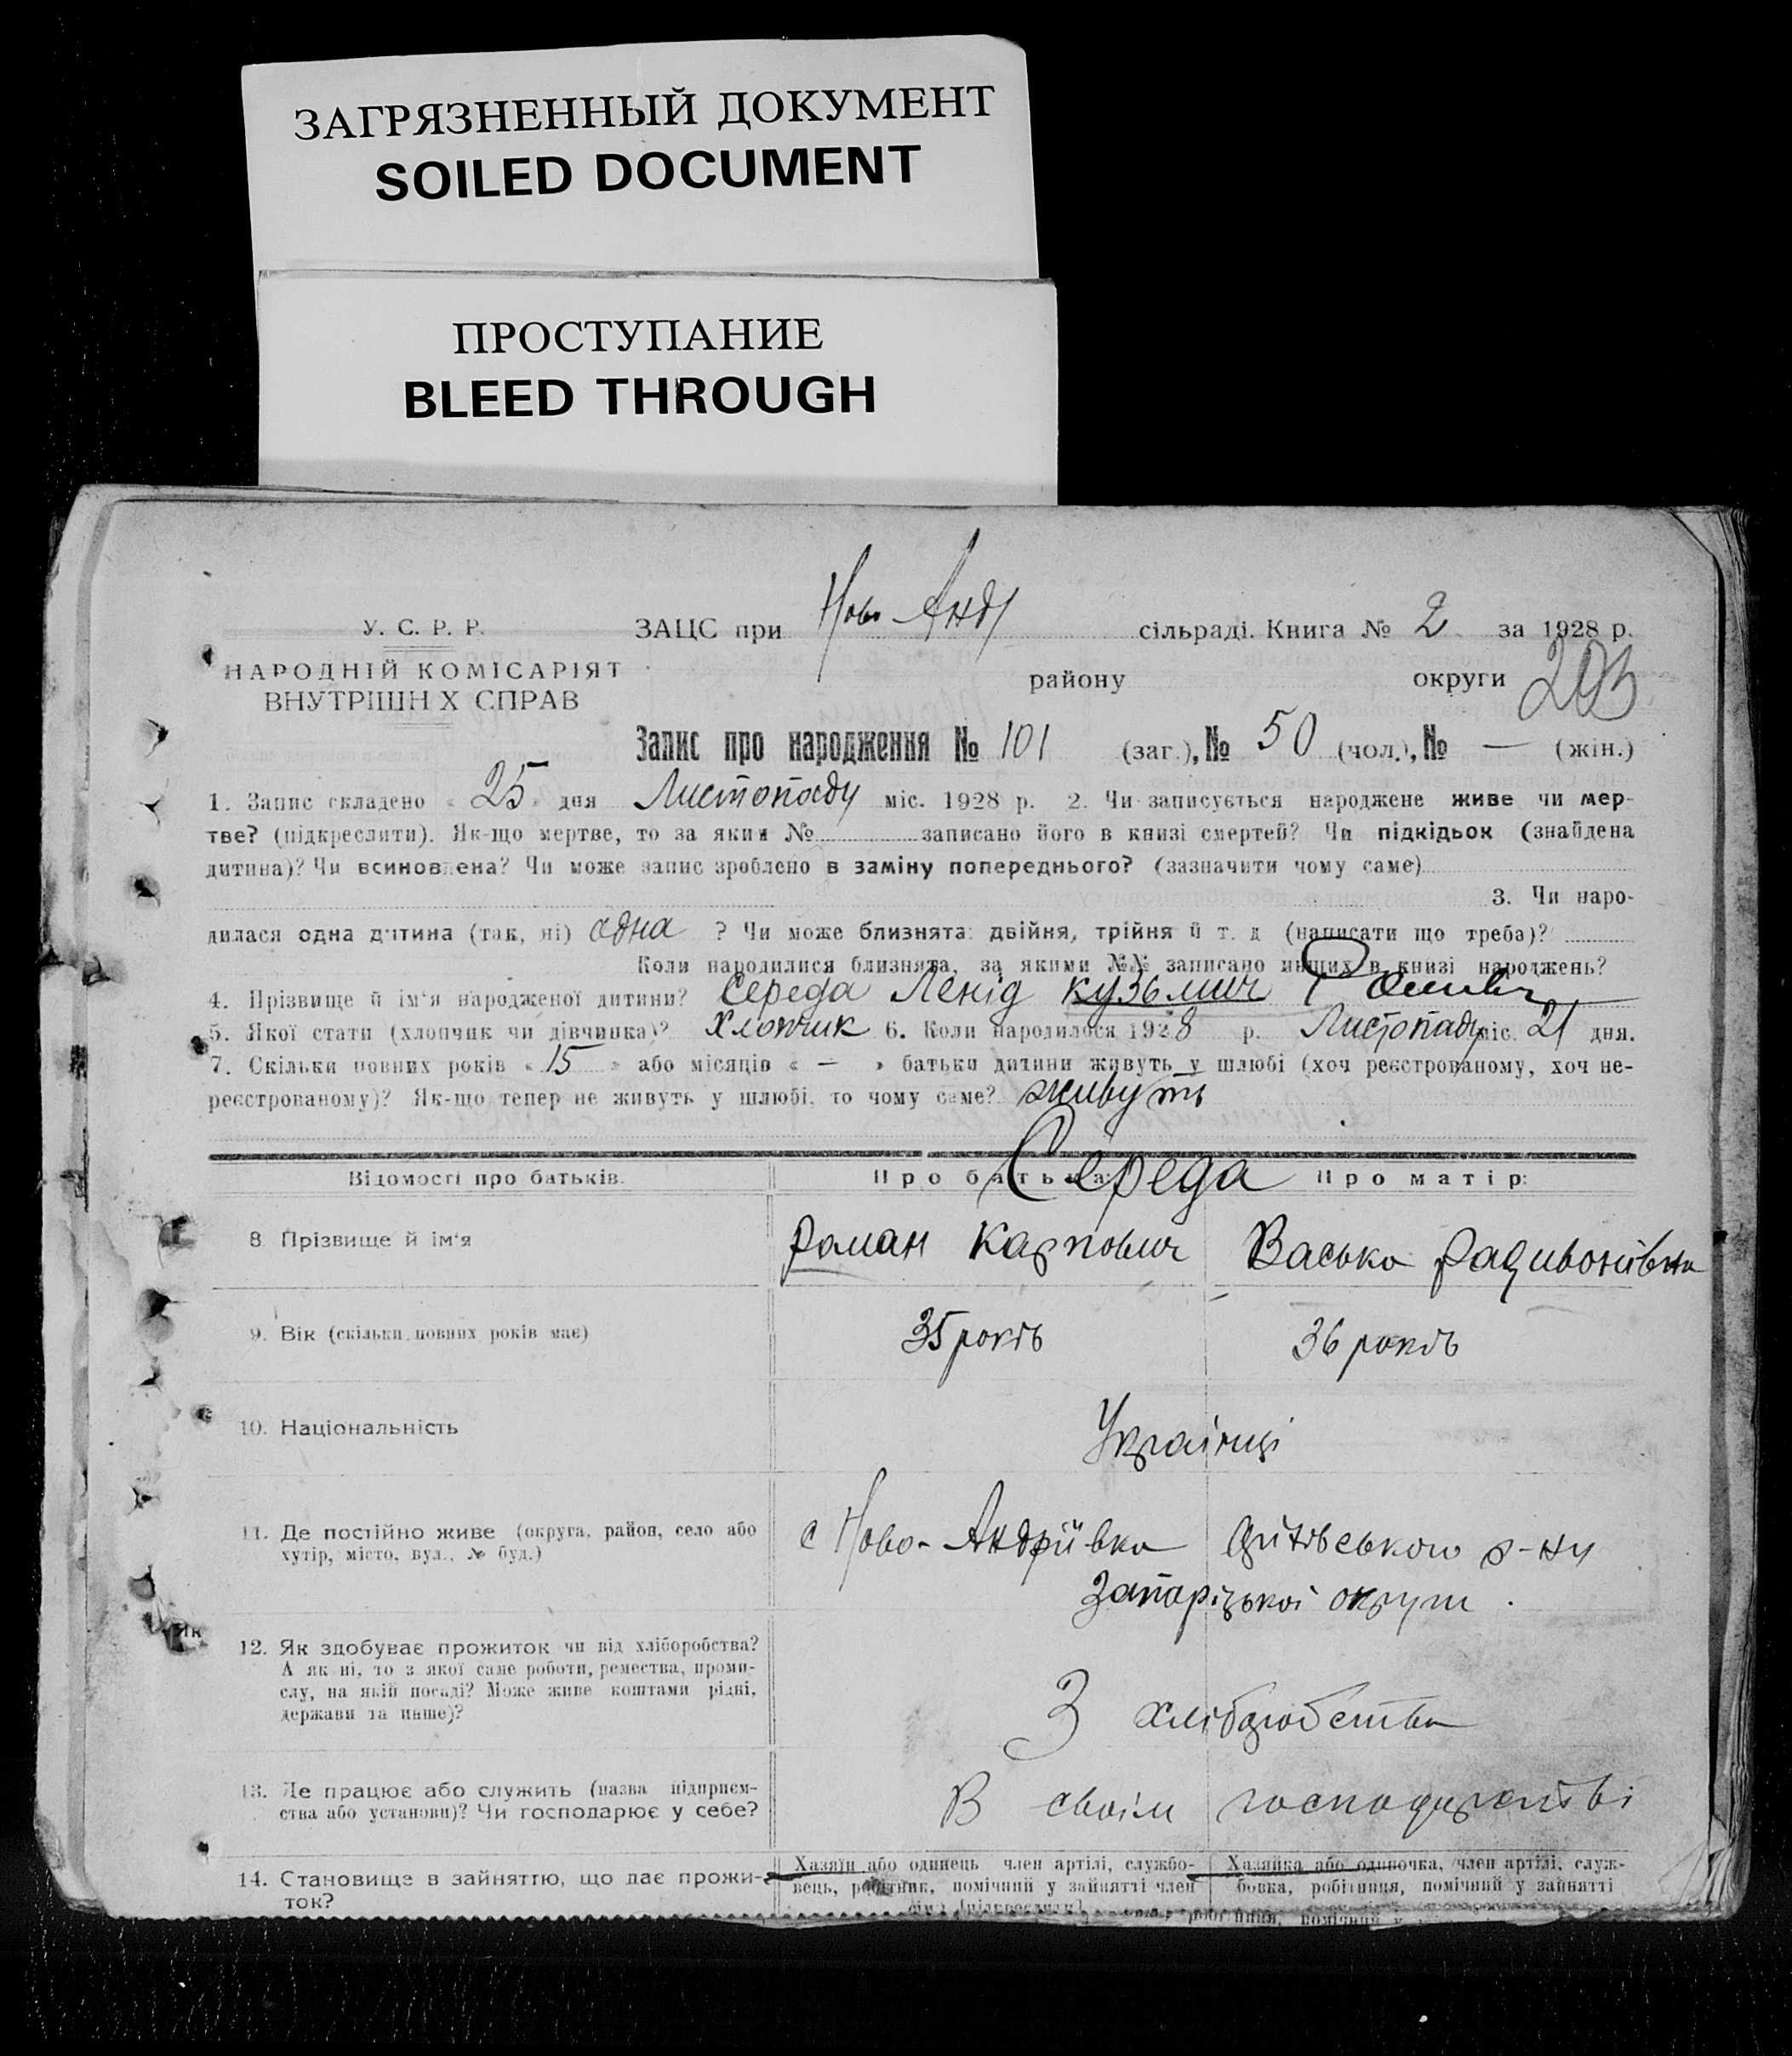 ЗАГРЯЗНЕННЫЙ ДОКУМЕНТ
SOILED DOCUMENT
ПРОСТУПАНИЕ
BLEED THROUGH
У. С. Р. Р. ЗАЦС при Ново Анд сільраді. Книга № 2 за 1928 р.
НАРОДНІЙ КОМІСАРІЯТ району округи 203
ВНУТРІШН Х СПРАВ
Запис про народження № 101 (заг.), № 50 (чол.), № — (жін.)
1. Запис складено « 25 » дня Листопаду міс. 1928 р. 2. Чи записується народжене живе чи мер-
тве? (підкреслити). Як-що мертве, то за яким № записано його в книзі смертей? Чи підкідьок (знайдена
дитина)? Чи всиновлена? Чи може запис зроблено в заміну попереднього? (зазначити чому саме)
3. Чи наро-
дилася одна дитина (так, ні) одна ? Чи може близнята: двійня, трійня й т. д (написати що треба)?
Коли народилися близнята, за якими №№ записано инших в книзі народжень?
4. Прізвище й ім'я народженої дитини? Середа Ленід кузьмич
5. Якої стати (хлопчик чи дівчинка)? Хлопчик 6. Коли народилося 1928 р. Листопаду міс. 21 дня.
7. Скільки повних років « 15 » або місяців « — » батьки дитини живуть у шлюбі (хоч реєстрованому, хоч не-
реєстрованому)? Як-що тепер не живуть у шлюбі, то чому саме? живуть
Середа
Відомості про батьків. Про батька: Про матір:
8. Прізвище й ім'я Роман Карпович Васька Радивонівна
9. Вік (скільки повних років має) 35 років 36 років
10. Національність Українці
11. Де постійно живе (округа, район, село або с Ново-Андріївка р-ну
хутір, місто, вул., № буд.) Запорізької округи.
12. Як здобуває прожиток чи від хліборобства?
А як ні, то з якої саме роботи, ремества, проми-
слу, на якій посаді? Може живе коштами рідні, З хліборобства
держави та инше)?
13. Де працює або служить (назва підприєм- В своїм господарстві
ства або установи)? Чи господарює у себе?
14. Становище в зайняттю, що дає прожи- Хазяїн або одинець член артілі, службо- Хазяйка або одиночка, член артілі, служ-
ток? вець, робітник, помічний у зайнятті член бовка, робітниця, помічний у зайнятті